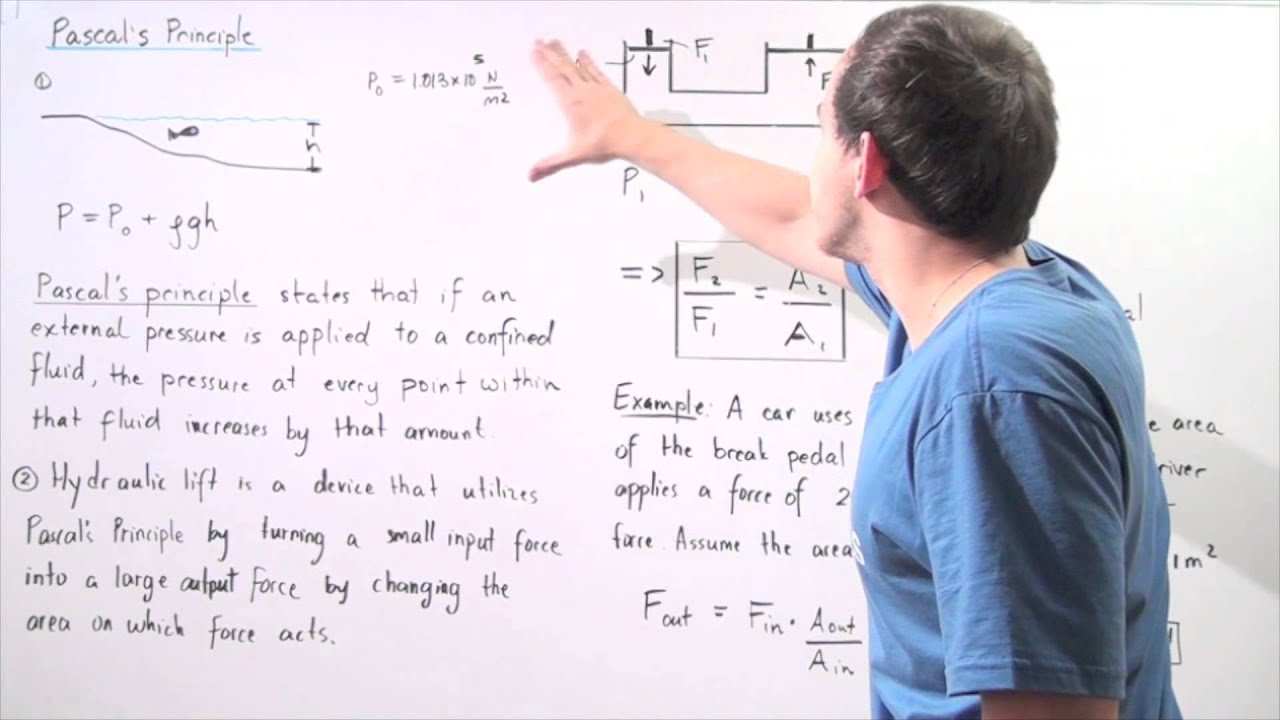 Pascal's Principle
①
P₀ = 1.013×10⁵ N/m2
h
P = P₀ + ρgh
Pascal's principle states that if an
external pressure is applied to a confined
fluid, the pressure at every point within
that fluid increases by that amount.
② Hydraulic lift is a device that utilizes
Pascal's Principle by turning a small input force
into a large output force by changing the
area on which force acts.
F₁
F
P₁
=> F₂/F₁ = A₂/A₁
Example: A car uses
of the break pedal e area
applies a force of 2 river
force. Assume the area 1m²
Fout = Fin · Aout/Ain